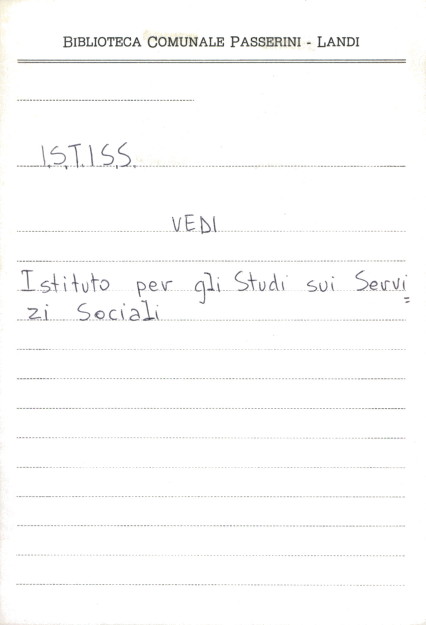 BIBLIOTECA COMUNALE PASSERINI - LANDI
I.S.T.I.S.S.
VEDI
Istituto per gli Studi sui Servi=
zi Sociali